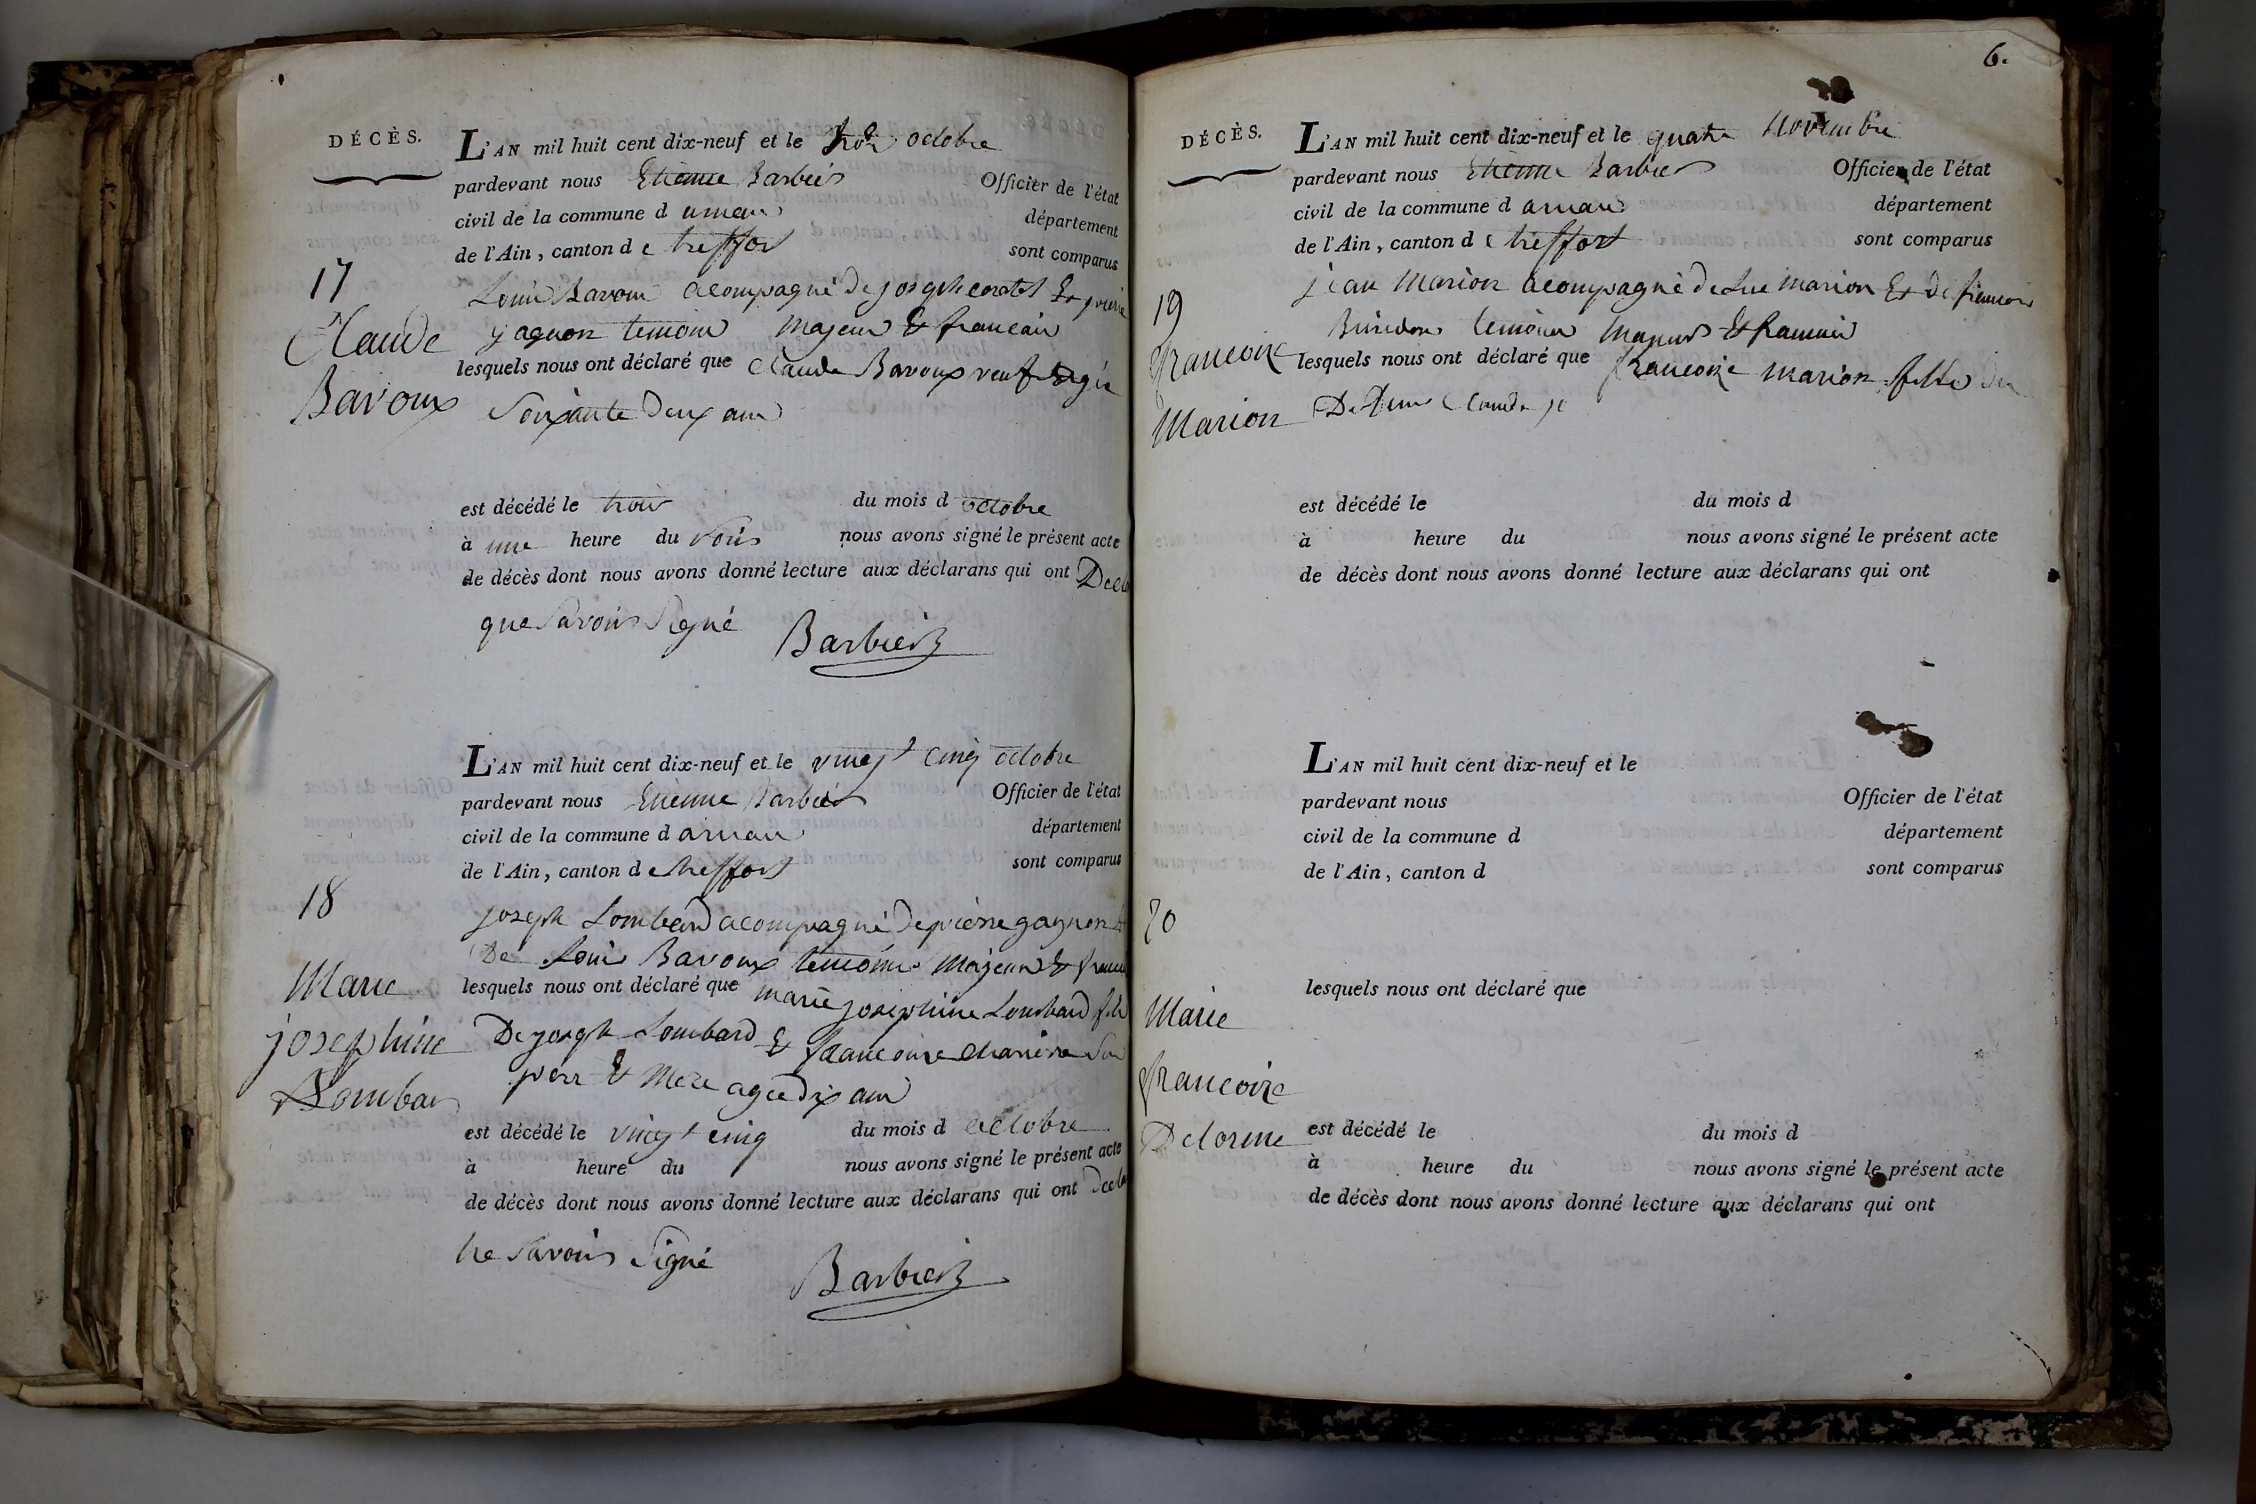 DÉCÈS.
L'AN mil huit cent dix-neuf et le trois octobre
pardevant nous Etienne Barbier Officier de l'état
civil de la commune d arnan département
de l'Ain, canton d e treffort sont comparus
17
Claude
Bavoux
Louis Bavoux acompagné De joseph Et pierre
temoins majeurs Et francais
lesquels nous ont déclaré que Claude Bavoux veuf agée
Soixante Deux ans
est décédé le trois du mois d octobre
à une heure du soir nous avons signé le présent acte
de décès dont nous avons donné lecture aux déclarans qui ont
que Savoir Signé
Barbier
L'AN mil huit cent dix-neuf et le vingt cinq octobre
pardevant nous Etienne Barbier Officier de l'état
civil de la commune d arnan département
de l'Ain, canton d e treffort sont comparus
18
Marie
josephine
Lombar
joseph Lombard acompagné De pierre gagnon Et
De Louis Bavoux temoins Majeurs Et
lesquels nous ont déclaré que marie josephine Lombard
De joseph Lombard Et francoise
pere Et Mere agee Dix ans
est décédé le vingt cinq du mois d octobre
à heure du nous avons signé le présent acte
de décès dont nous avons donné lecture aux déclarans qui ont
ne Savoir Signé
Barbier
6.
DÉCÈS.
L'AN mil huit cent dix-neuf et le quatre Novembre
pardevant nous Etienne Barbier Officier de l'état
civil de la commune d arnan département
de l'Ain, canton d e treffort sont comparus
19
francoize
Marion
jean Marion acompagné De Luc Marion Et De francois
temoins Majeurs Et francais
lesquels nous ont déclaré que francoize Marion fille
De Claude
est décédé le du mois d
à heure du nous avons signé le présent acte
de décès dont nous avons donné lecture aux déclarans qui ont
L'AN mil huit cent dix-neuf et le
pardevant nous Officier de l'état
civil de la commune d département
de l'Ain, canton d sont comparus
20
Marie
francoize
Delorme
lesquels nous ont déclaré que
est décédé le du mois d
à heure du nous avons signé le présent acte
de décès dont nous avons donné lecture aux déclarans qui ont